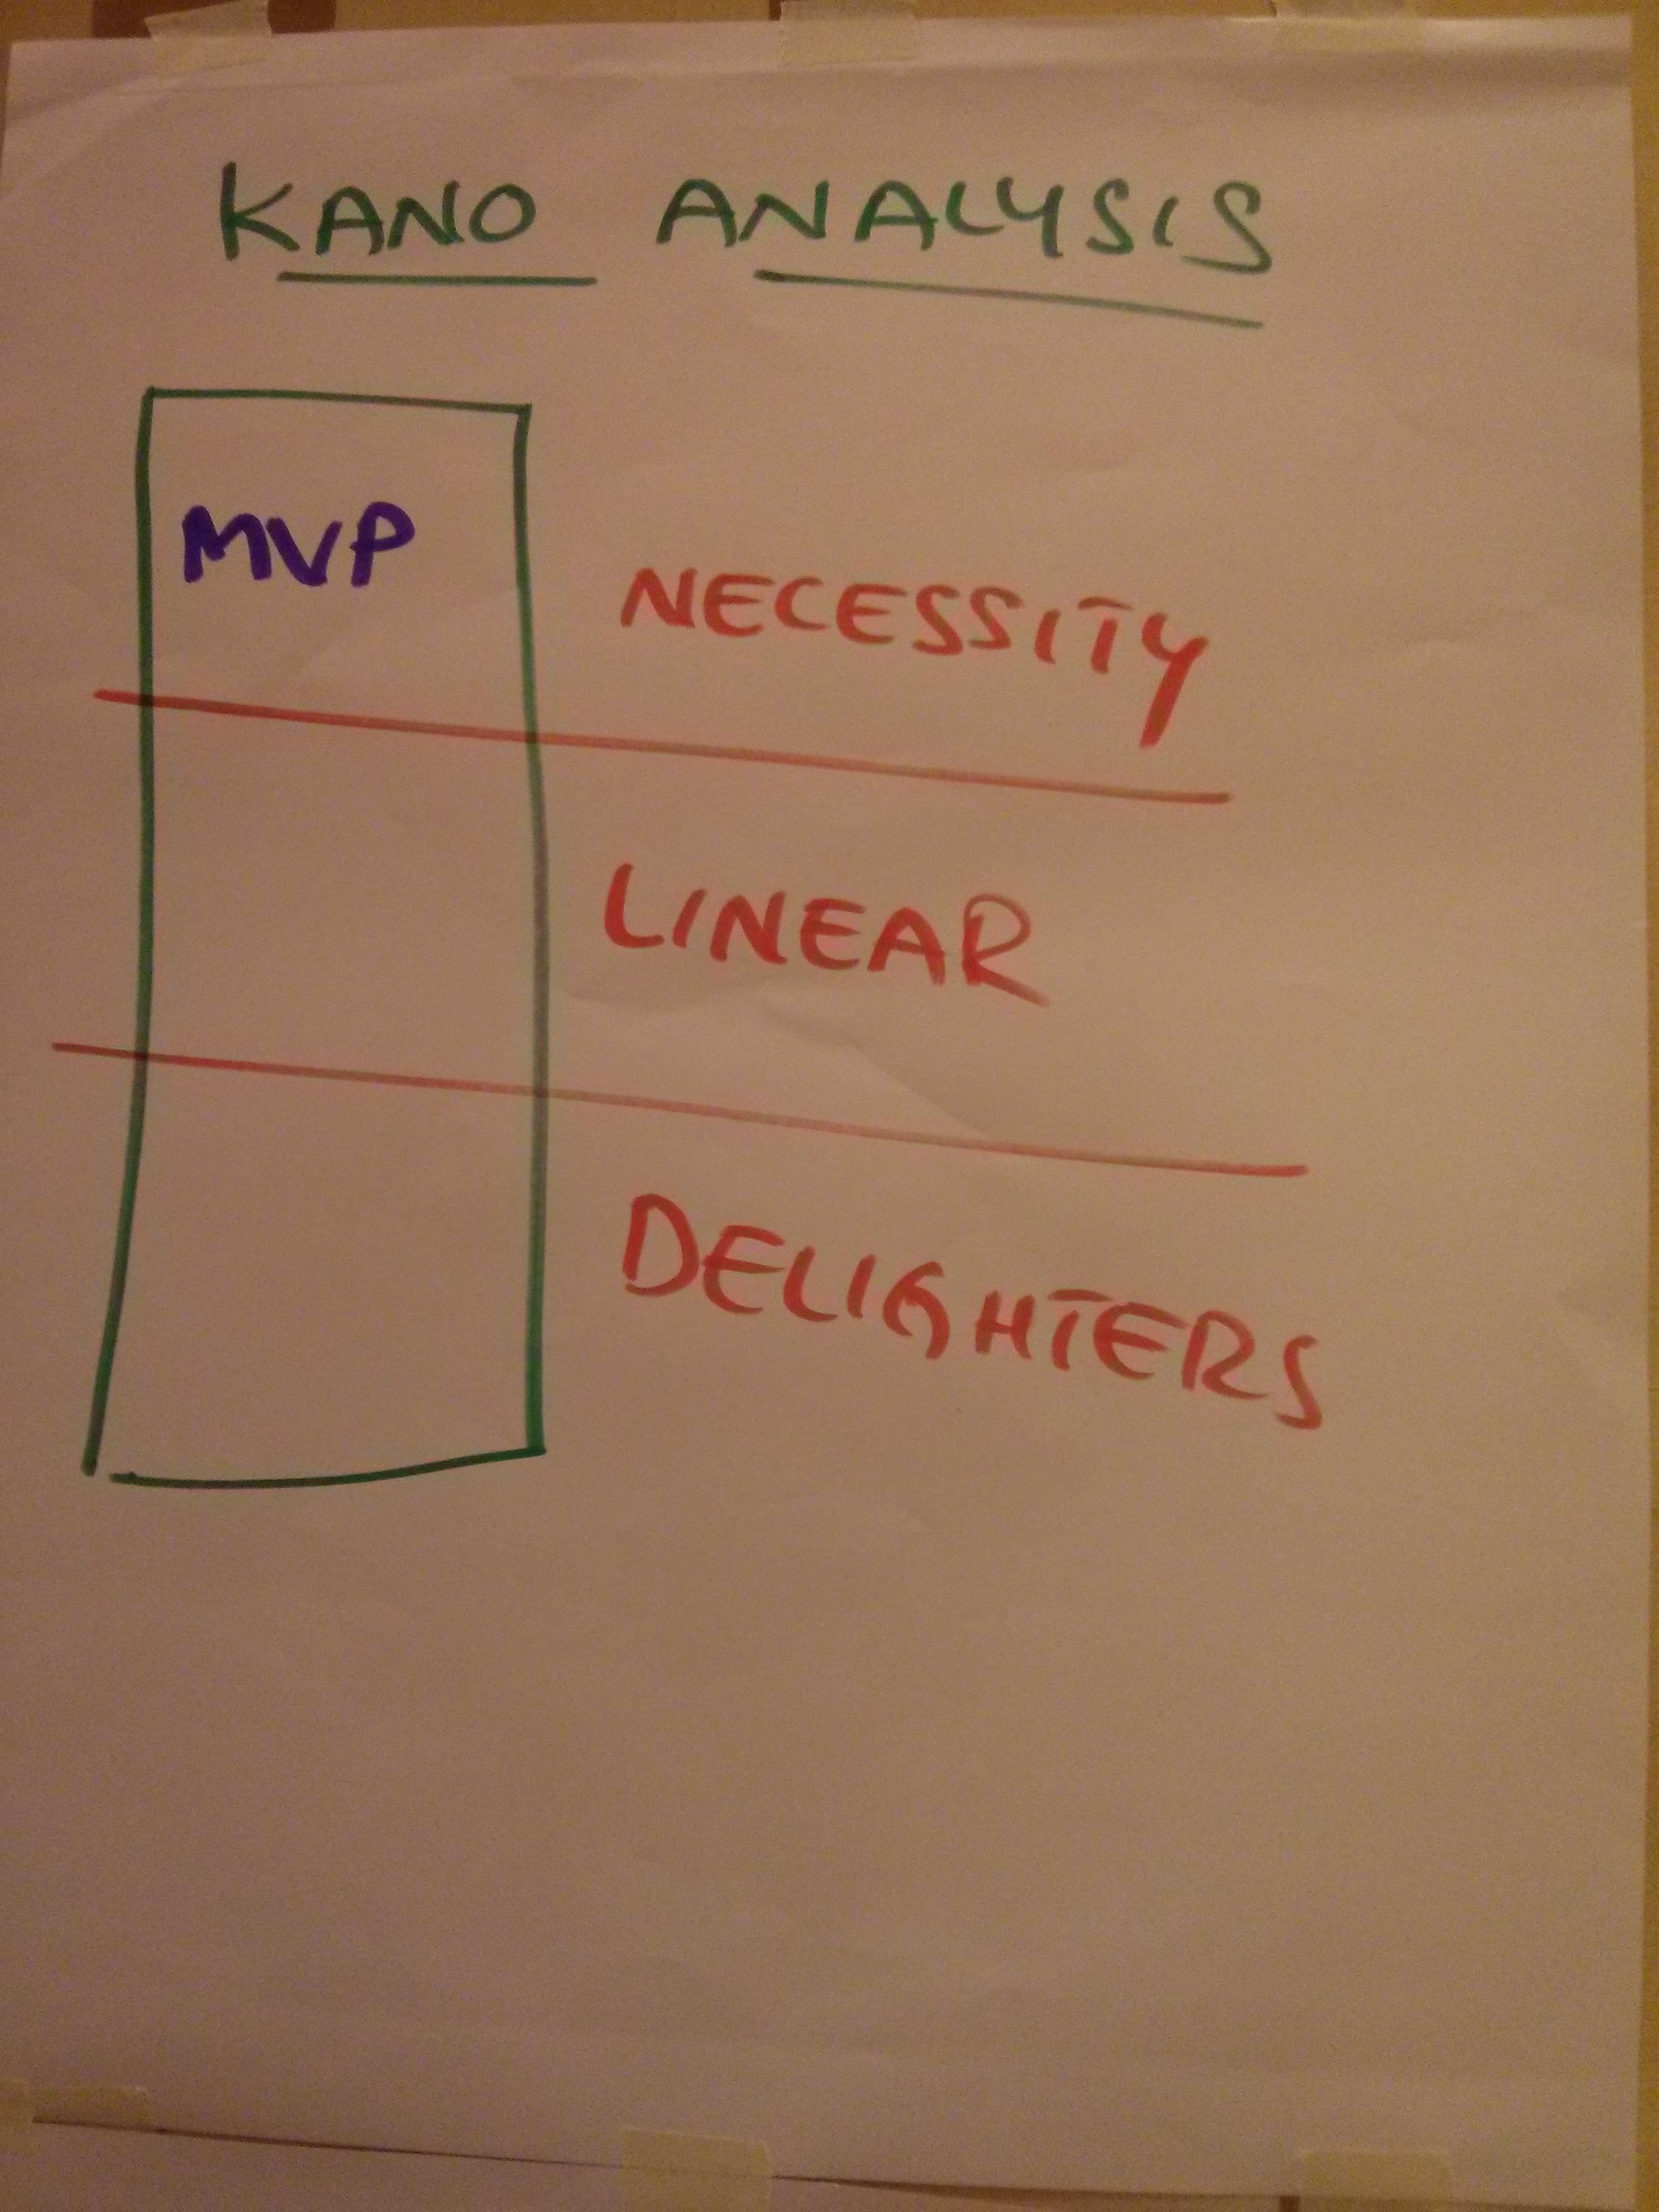 KANO ANALYSIS
MVP
NECESSITY
LINEAR
DELIGHTERS